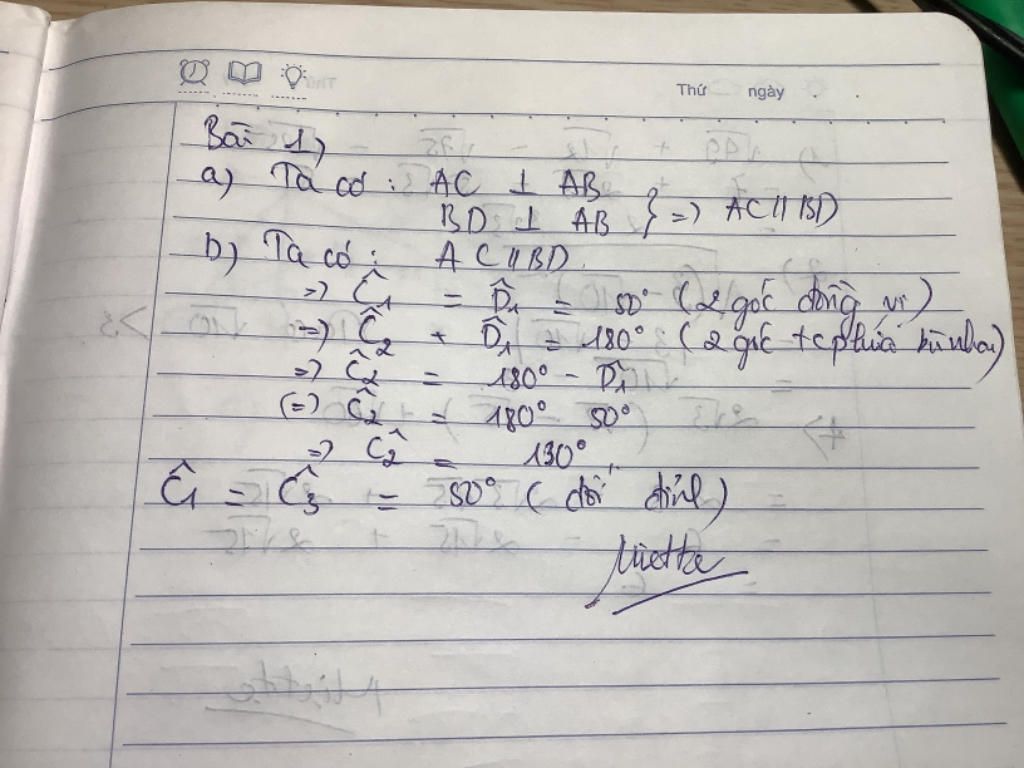 Thứ ngày
Bài 1,
a) Ta có : AC ⊥ AB
BD ⊥ AB } => AC // BD
b) Ta có : AC // BD
=> Ĉ1 = D̂1 = 50° (2 góc đồng vị)
=> Ĉ2 + D̂1 = 180° (2 góc tcp bù nhau)
=> Ĉ2 = 180° - D̂1
(=) Ĉ2 = 180° 50°
=> Ĉ2 = 130°
Ĉ1 = Ĉ3 = 50° (đối đỉnh)